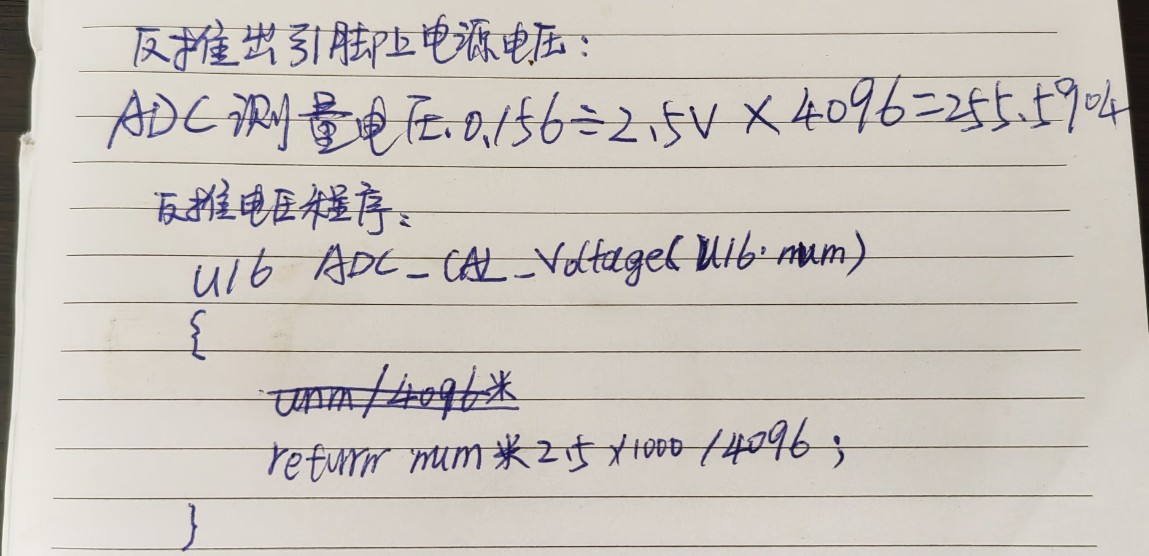 反推出引脚上电源电压:
ADC测量电压.0.156÷2.5V×4096=255.5904
反推电压程序:
u16 ADC_CAL_Voltage(U16 num)
{
unm/4096*
return num*2.5×1000/4096;
}